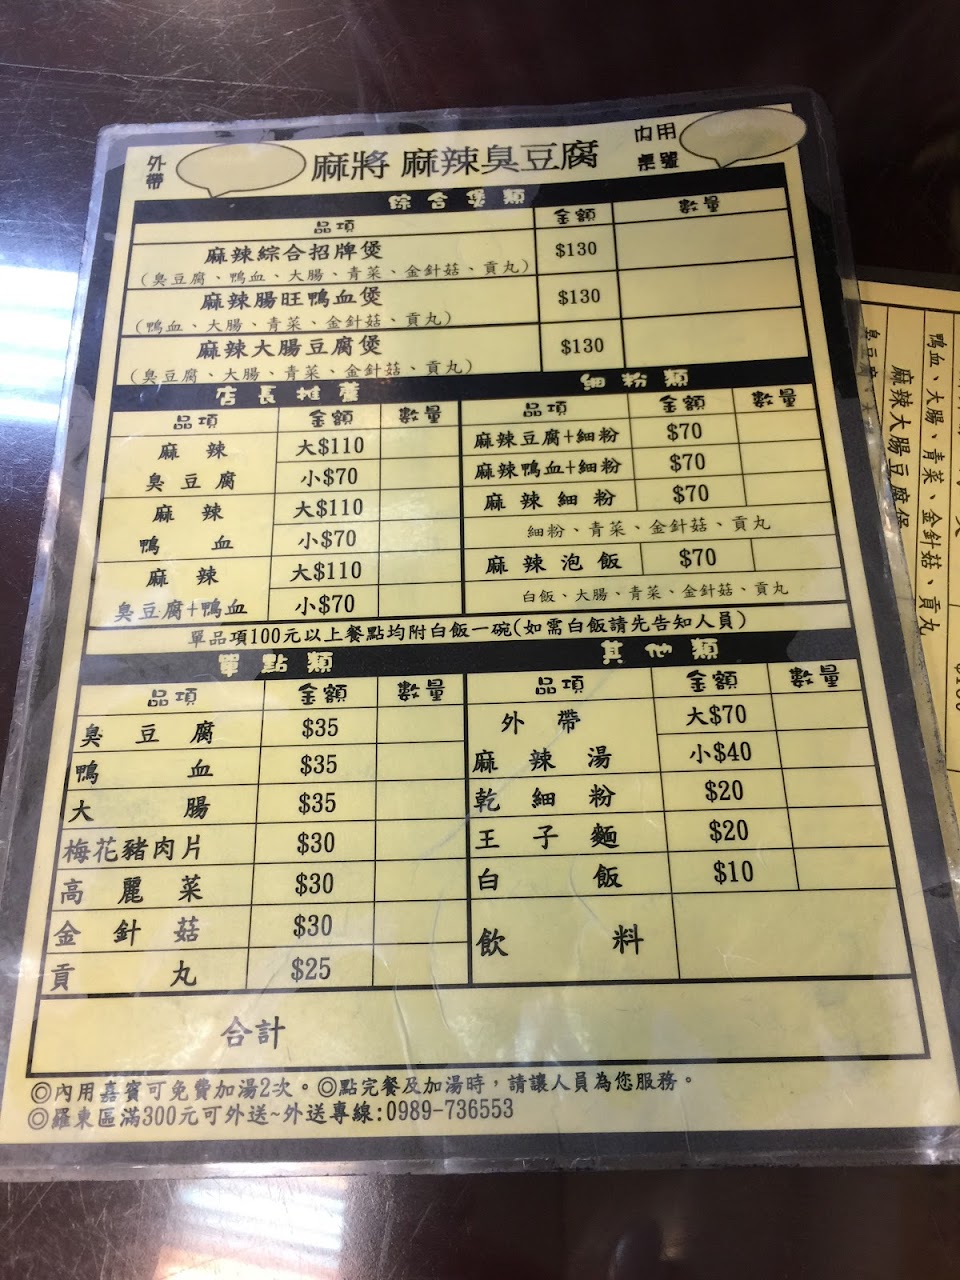 外帶
麻將 麻辣臭豆腐
內用
桌號
綜合煲類
品項 金額 數量
麻辣綜合招牌煲 $130
(臭豆腐、鴨血、大腸、青菜、金針菇、貢丸)
麻辣腸旺鴨血煲 $130
(鴨血、大腸、青菜、金針菇、貢丸)
麻辣大腸豆腐煲 $130
(臭豆腐、大腸、青菜、金針菇、貢丸)
店長推薦
品項 金額 數量
麻辣 大$110
臭豆腐 小$70
麻辣 大$110
鴨血 小$70
麻辣 大$110
臭豆腐+鴨血 小$70
細粉類
品項 金額 數量
麻辣豆腐+細粉 $70
麻辣鴨血+細粉 $70
麻辣細粉 $70
細粉、青菜、金針菇、貢丸
麻辣泡飯 $70
白飯、大腸、青菜、金針菇、貢丸
單品項100元以上餐點均附白飯一碗(如需白飯請先告知人員)
單點類
品項 金額 數量
臭豆腐 $35
鴨血 $35
大腸 $35
梅花豬肉片 $30
高麗菜 $30
金針菇 $30
貢丸 $25
其他類
品項 金額 數量
外帶 大$70
麻辣湯 小$40
乾細粉 $20
王子麵 $20
白飯 $10
飲料
合計
◎內用嘉賓可免費加湯2次。◎點完餐及加湯時，請讓人員為您服務。
◎羅東區滿300元可外送~外送專線:0989-736553
鴨血、大腸、青菜、金針菇、貢丸
麻辣大腸豆腐煲